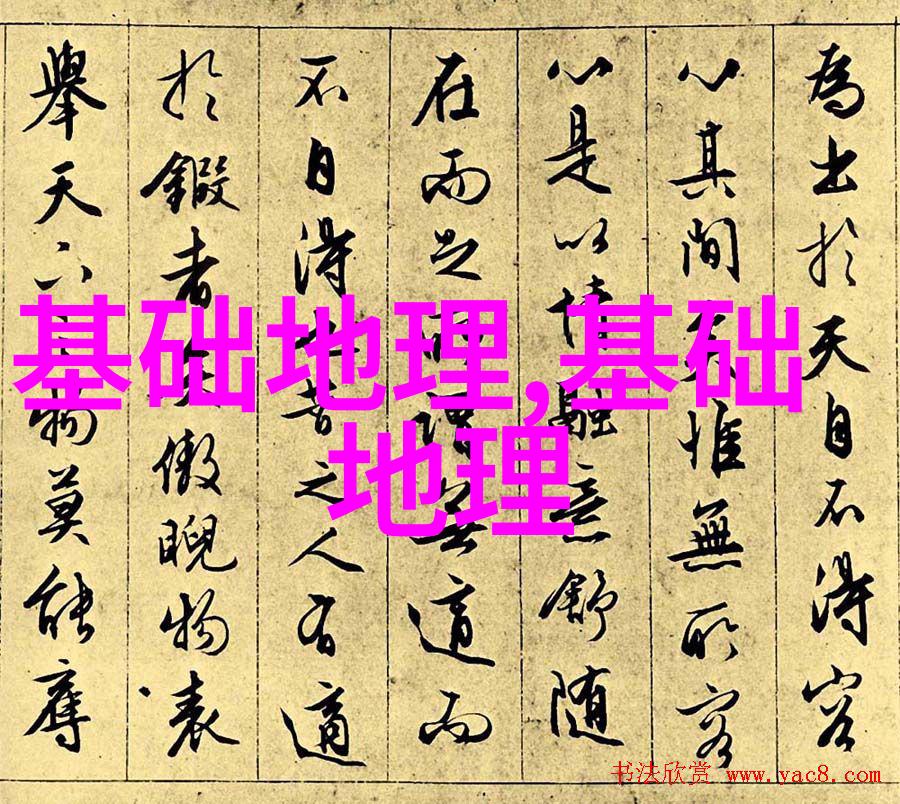 為出於天自不得容
心其間夫惟無所容
心是以情融意舒随
在而足所謂無適而
不自得也昔之人有適
於鍛者矣傲睨物表
舉天下之物莫能奪
基础地理,基础
地理
书法欣赏 www.yac8.com